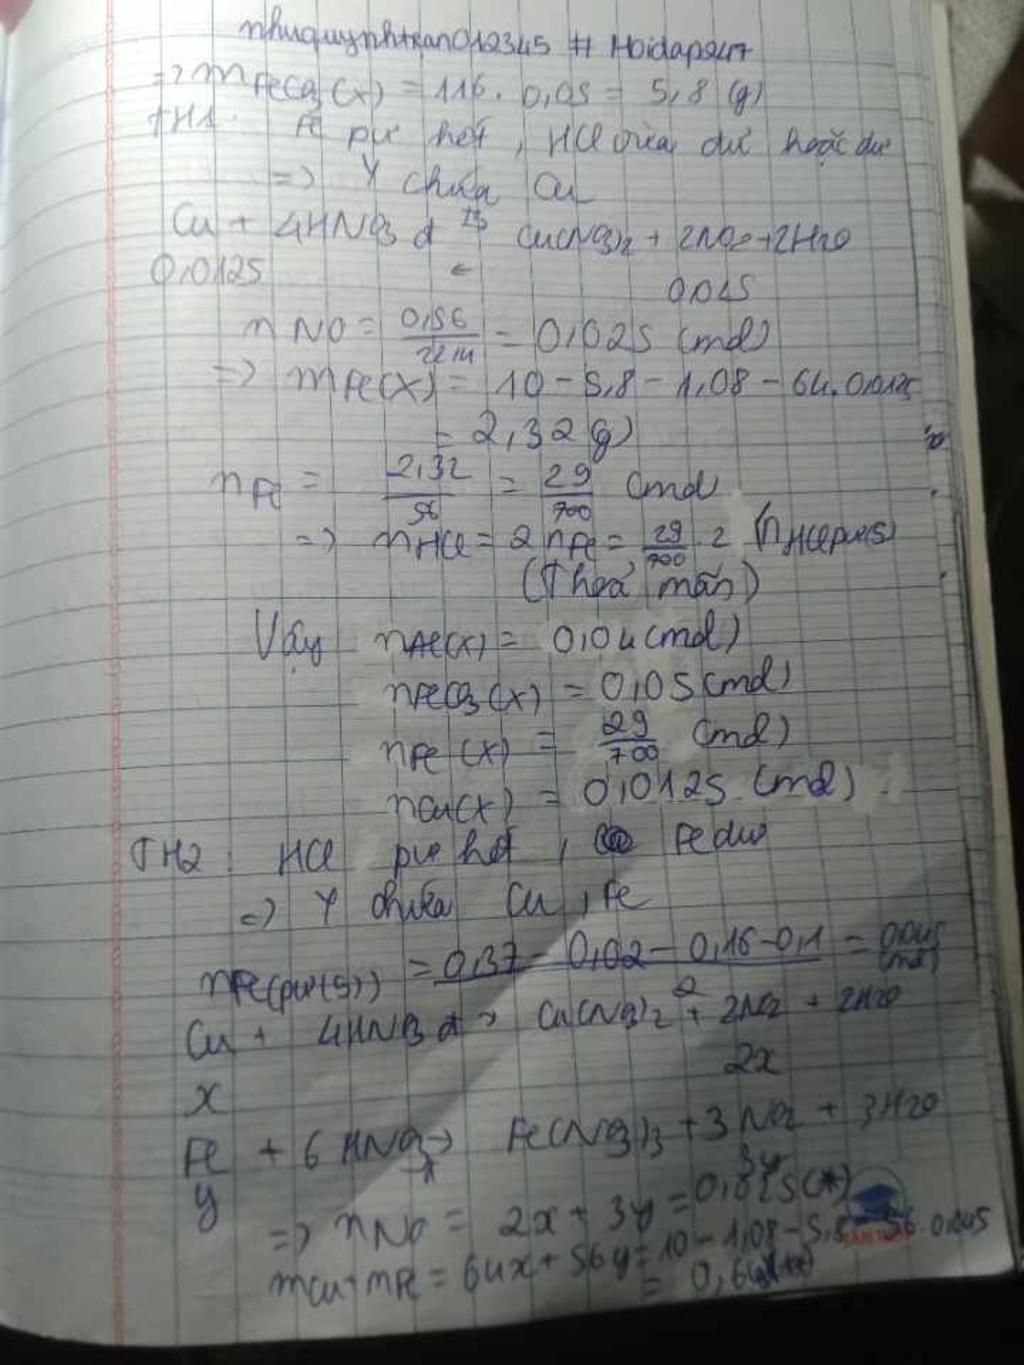 nhuquynhtran012345 # Hoidap247
=> mFeCO3(X) = 116. 0,05 = 5,8 (g)
TH1: Fe pư hết, HCl vừa đủ hoặc dư
=> Y chứa Cu
Cu + 4HNO3 đ → Cu(NO3)2 + 2NO2 + 2H2O
0,0125 ← 0,025
nNO = 0,56/22,4 = 0,025 (mol)
=> mFe(X) = 10 - 5,8 - 1,08 - 64.0,0125
= 2,32 (g)
nFe = 2,32/56 = 29/700 (mol)
=> nHCl = 2nFe = 29/700 . 2 (nHClpư(5)
(Thoả mãn)
Vậy nAl(X) = 0,04 (mol)
nFeCO3(X) = 0,05 (mol)
nFe(X) = 29/700 (mol)
nCu(X) = 0,0125 (mol)
TH2: HCl pư hết, Fe dư
=> Y chứa Cu, Fe
nFe(pư(5)) = 0,37 - 0,02 - 0,16 - 0,1 / 2 = 0,045 (mol)
Cu + 4HNO3 đ → Cu(NO3)2 + 2NO2 + 2H2O
x 2x
Fe + 6HNO3 → Fe(NO3)3 + 3NO2 + 3H2O
y 3y
=> nNO = 2x + 3y = 0,025 (*)
mCu + mFe = 64x + 56y = 10 - 1,08 - 5,8 - 56.0,045